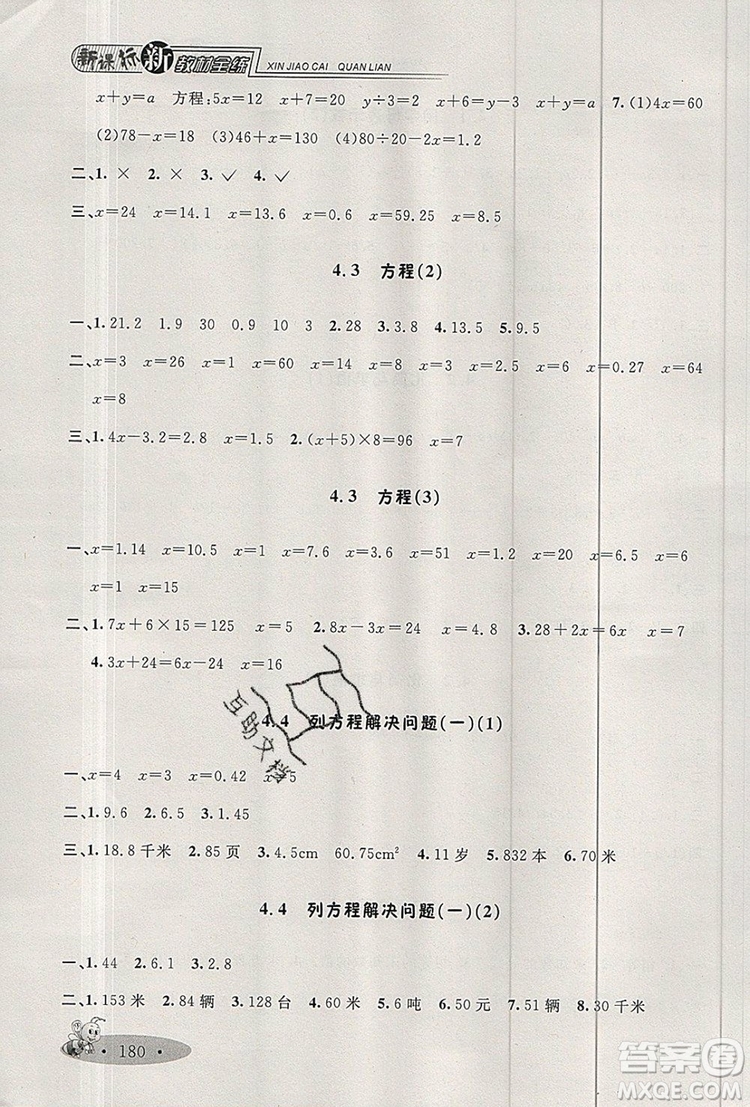 新课标新教材全练 XIN JIAO CAI QUAN LIAN
x+y=a 方程:5x=12 x+7=20 y÷3=2 x+6=8 x+y=a 7.(1)4x=60
(2)78-x=18 (3)46+x=130 (4)80÷20-2x=1.2
二、1.× 2.× 3.✓ 4.✓
三、x=24 x=14.1 x=13.6 x=0.6 x=59.25 x=8.5
4.3 方程(2)
一、1.21.2 1.9 30 0.9 10 2.28 3.3.8 4.13.5 5.9.5
二、x=3 x=26 x=1 x=60 x=100 x=6 x=0.27 x=64
x=8
三、1.4x-3.2=2.8 x=1.5 2.(x+5)×8=96 x=7
4.3 方程(3)
一、x=1.14 x=10.5 x=1 x=2 x=4 x=6 x=6
x=1 x=15
二、1.7x+6×15=125 x=5 2.8x-3x=24 x=4.8 3.28+2x=6x x=7
4.3x+24=6x-24 x=16
4.4 列方程解决问题(一)(1)
一、x=4 x=3 x=0.42 x=5
二、1.9.6 2.6.5 3.1.45
三、1.18.8千米 2.85页 3.4.5cm 60.75cm² 4.11岁 5.832本 6.70米
4.4 列方程解决问题(一)(2)
一、1.44 2.6.1 3.2.8
二、1.153米 2.84辆 3.128台 4.60米 5.6吨 6.50元 7.51辆 8.30千米
• 180 •
互助文档
答案圈
MXQE.COM